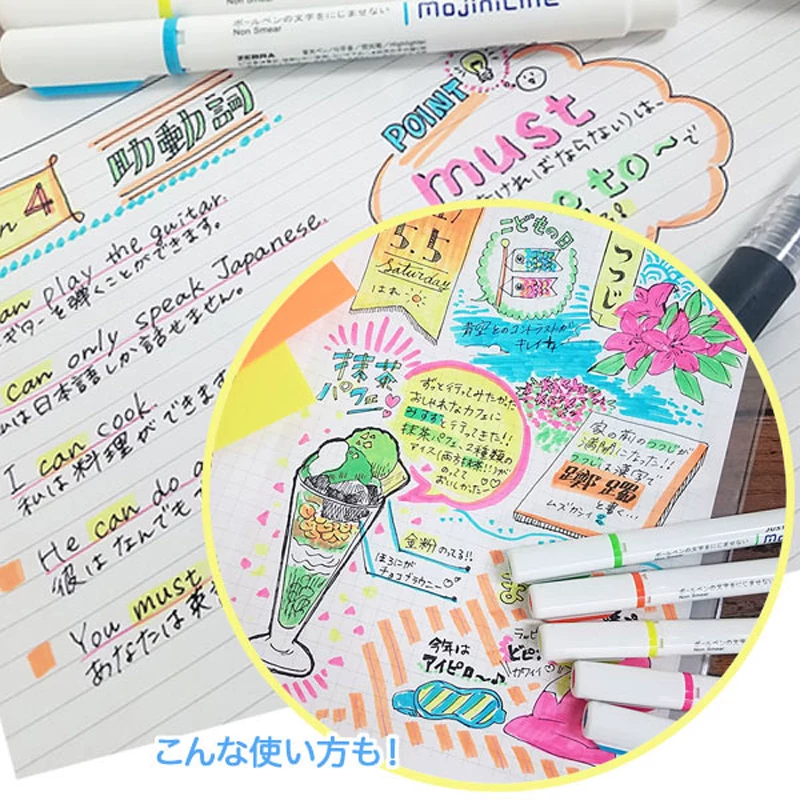 ボールペンの文字をにじませない
Non Smear
mojiniLine
ボールペンの文字をにじませない
Non Smear
ZEBRA
助動詞
4
POINT
must
なければならない)は、
to～で
play the guitar.
ギターを弾くことができます。
can only speak Japanese.
は日本語しか話せません。
I can cook.
私は料理ができます
He can do
彼はなんでも
You must
あなたは英
5.5
Saturday
はれ
こどもの日
つつじ
希望とのコントラストが
キレイ
抹茶
パフェ
ずっと行ってみたかった
おしゃれなカフェに
みすずと行ってきた!!
抹茶パフェ、2種類の
アイス(両方抹茶!!)が
のってて
おいしかった
家の前のつつじが
満開になった!!
つつじは漢字で
躑躅
と書く…
ムズカシイ
金粉のってる!!
ほろにが
チョコブラウニー
今年は
アイピロ〜♪
カワイイ
ボールペンの文字をにじませない
ボールペンの文字をにじませない
Non Smear
ボールペンの文字を
Non Smear
こんな使い方も!